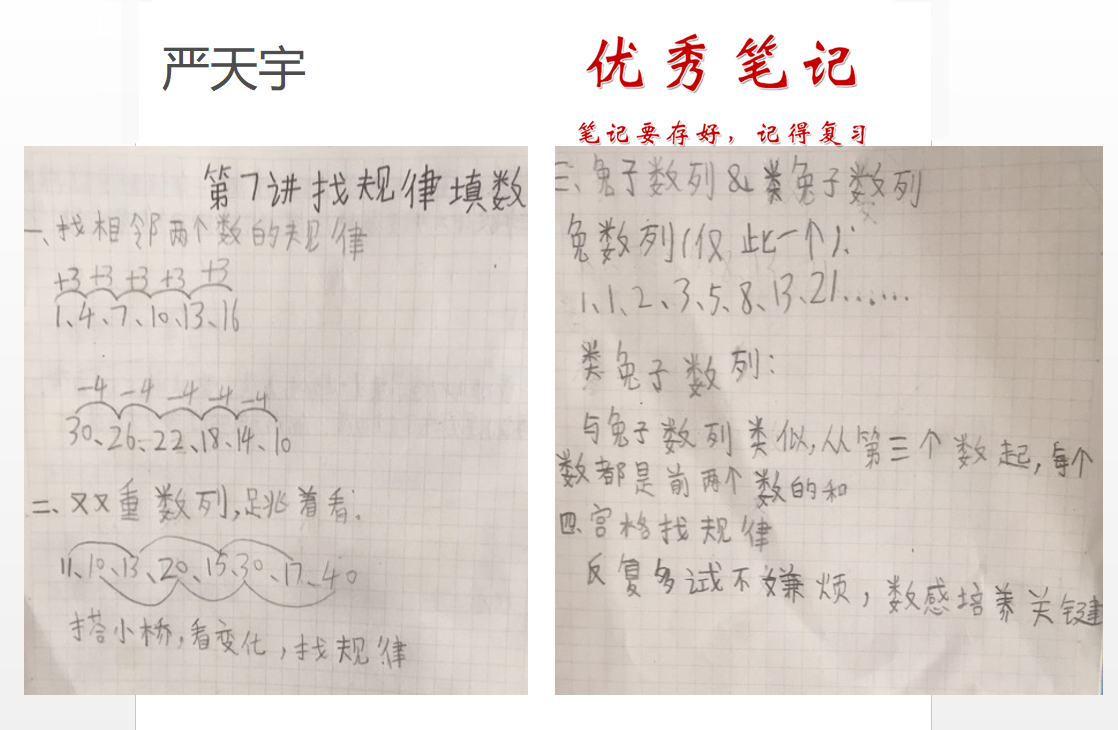 严天宇
优秀笔记
笔记要存好，记得复习
第7讲找规律填数
一、找相邻两个数的规律
+3 +3 +3 +3 +3
1、4、7、10、13、16
-4 -4 -4 -4 -4
30、26、22、18、14、10
二、双重数列,跳着看:
11、10、13、20、15、30、17、40
搭小桥,看变化,找规律
三、兔子数列&类兔子数列
兔数列(仅此一个):
1、1、2、3、5、8、13、21......
类兔子数列:
与兔子数列类似,从第三个数起,每个
数都是前两个数的和
四、宫格找规律
反复多试不嫌烦,数感培养关键